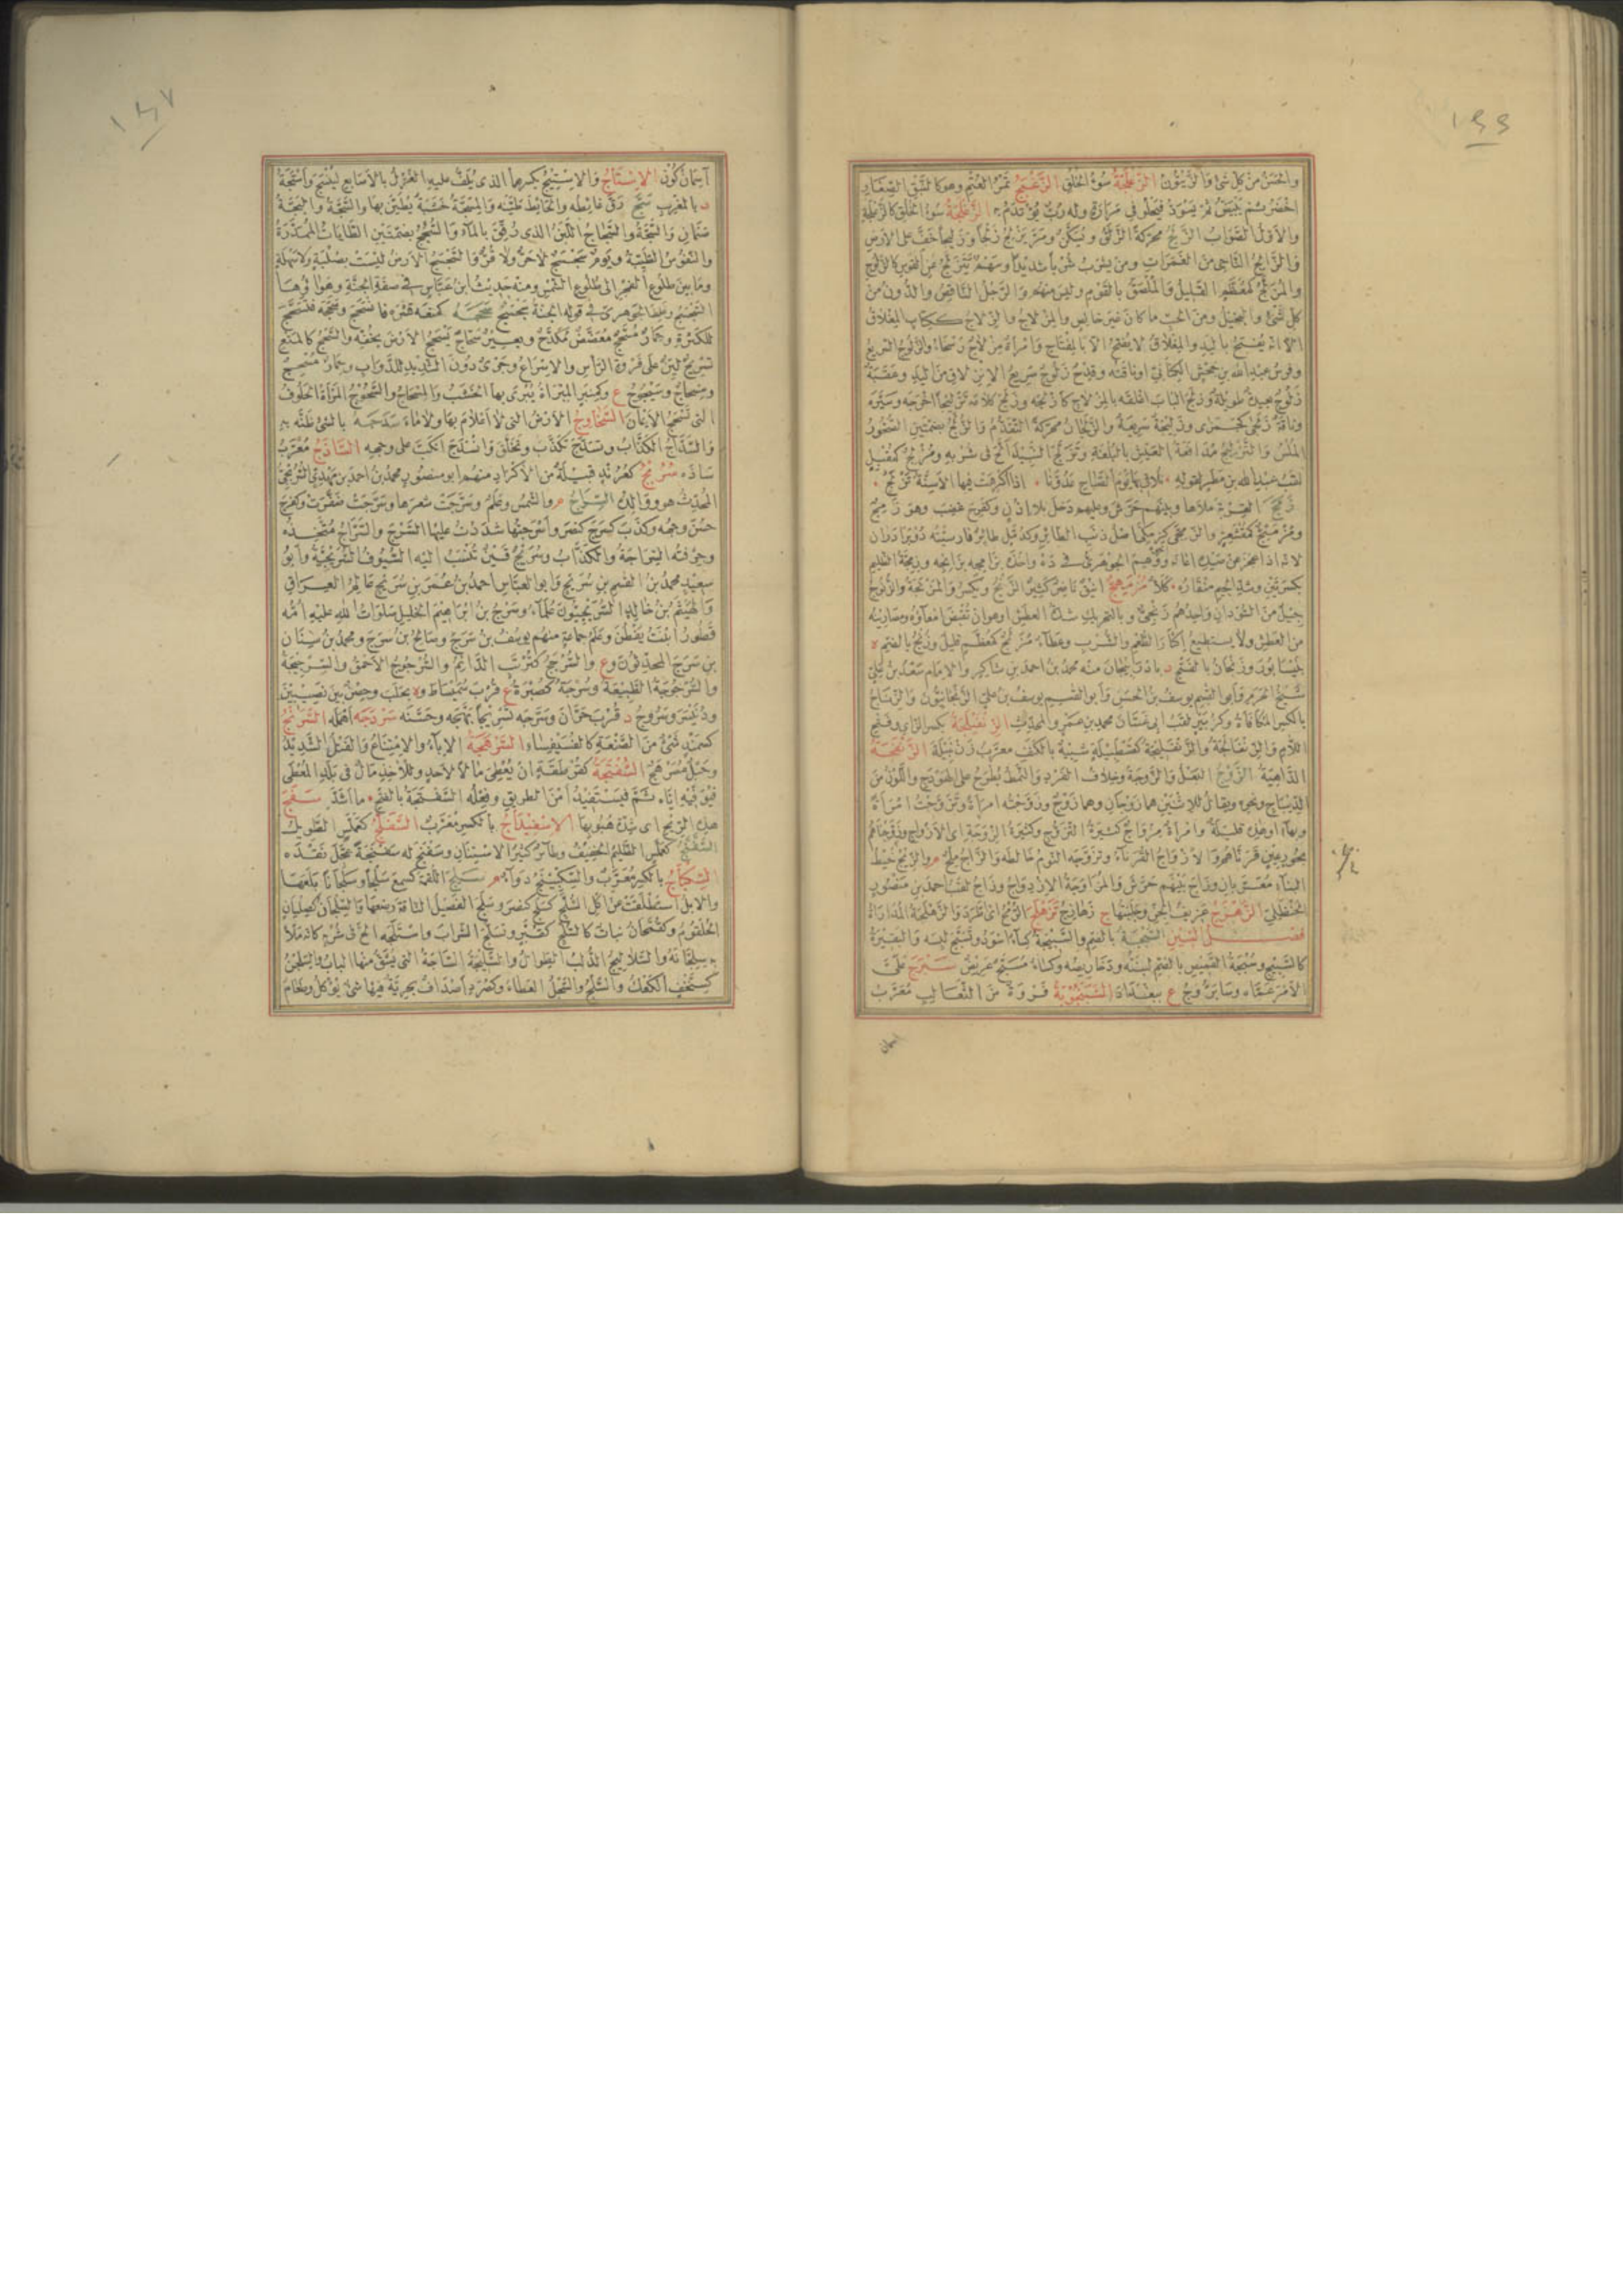 ١٤٤
والحسن من كل شئ والزيتون الزعلجة سوء الخلق الزغبج ثمر العتم وهو كالنبق الصغار
اخضر ثم يبيض ثم يسود فيحلو في مرارة وله رب يؤتدم به الزغلجة سوء الخلق كالزعلجة
والاول الصواب الزلج محركة الزلق ويسكن ومر يزلج زلجا وزليجا خف على الارض
والزالج الناجي من الغمرات ومن يشرب شربا شديدا وسهم يتزلج عن القوس كالزلوج
والمزلج كمعظم القليل والملصق بالقوم وليس منهم والرجل الناقص والدون من
كل شئ والبخيل ومن الحب ما كان غير خالص والمزلاج والزلاج ككتاب المغلاق
الا انه يفتح باليد والمغلاق لا يفتح الا بالمفتاح وامراة مزلاج رسحاء والزلوج السريع
وفرس عبد الله بن جحش الكناني او ناقته وقدح زلوج سريع الانزلاق من اليد وعقبة
زلوج بعيدة طويلة وزلج الباب اغلقه بالمزلاج كازلجه وزلج كلامه تزليجا اخرجه وسيره
وناقة زلجى كجمزى وزليجة سريعة والزلجان محركة التقدم والزلج بضمتين الصخور
الملس والتزليج مدافعة العيش بالبلغة وتزلج النبيذ الح في شربه ومزلج كمقبل
لقب عبد الله بن مطر لقوله نلاقي بها يوم الصباح عدونا اذا اكرهت فيها الاسنة تزلج
زمج القربة ملاها وبينهم حرش وعليهم دخل بلا اذن وكفرح غضب وهو زمج
لانه اذا عجز عن صيده اعانه ووهم الجوهري في ده واخذه بزامجه بزابجه وزمجة الظليم
جيل من السودان واحدهم زنجي وبالتحريك شدة العطش او هو ان تقبض امعاؤه ومصارينه
من العطش ولا يستطيع اكثار الطعم والشرب وعطاء مزنج كمعظم قليل وزنج بالضم ة
بنيسابور وزنجان بالفتح د باذربيجان منه محمد بن احمد بن شاكر والامام سعد بن علي
شيخ الحرم وابو القسم يوسف بن الحسن وابو القسم يوسف بن علي الزنجانيون والزناج
بالكسر المكافاة وكزبير لقب ابي غسان محمد بن عمرو المحدث الزنفيلجة بكسر الزاي وفتح
اللام والزنفالجة والزنفليجة كقسطبيلة شبيه بالكنف معرب زن بيلة الزنمجة
الداهية الزوج البعل والزوجة وخلاف الفرد والنمط يطرح على الهودج واللون من
الديباج ونحوه ويقال للاثنين هما زوجان وهما زوج وزوجته امراة وتزوجت امراة
وبها او هذه قليلة وامراة مزواج كثيرة التزوج وكثيرة الزوجة اي الازواج وزوجناهم
بحور عين قرناهم والازواج القرناء وتزوجه النوم خالطه والزاج ملح م والزيج خيط
البناء معرب بان وزاج بينهم حرش والمزاوجة الازدواج وزاج لقب احمد بن منصور
الحنظلي الزهزج عزيف الجن وجلبتها ج زهازج تزهلج الرمح اطرد والزهلجة المداراة
فصل السين السبجة بالضم والسبيجة كساء اسود وتسبج لبسه والبقيرة
كالسبيج وسبجة القميص بالضم لبنته ودخاريصه وكساء مسبج عريض سبرج علي
الامر عماه وسابروج ع ببغداد السبنجونة فروة من الثعالب معرب
اسمان
١٤٧
آسمان كون الاستاج والاستيج بكسرهما الذي يلف عليه الغزل بالاصابع لينسج واستجة
د بالمغرب سج رق غائطه والحائط طينه والمسجة خشبة يطين بها والسجة والبجة
صنمان والسجة والسجاج اللبن الذي رقق بالماء والسجج بضمتين الطايات الممدرة
والنفوس الطيبة ويوم سجسج لا حر ولا قر والسجسج الارض ليست بصلبة ولا سهلة
وما بين طلوع الفجر الى طلوع الشمس ومنه حديث ابن عباس في صفة الجنة وهواؤها
السجسج وغلط الجوهري في قوله الجنة سجسج سحجه كمنعه قشره فانسحج وسحجه فتسحج
للكثرة وحمار مسحج معضض مكدح وبعير سحاج يسحج الارض بخفه والسحج كالمنع
تسريح لين على فروة الراس والاسراع وجرى دون الشديد للدواب وحمار مسحج
ومسحاج وسيحوج ع وكمنبر المبراة يبرى بها الخشب والمسحاج والسحوج المراة الحلوف
التي تسحج الايمان السخاوج الارض التي لا اعلام بها ولا ماء سدجه بالشئ ظنه به
والسداج الكذاب وتسدج تكذب وتخلق وانسدج انكب على وجهه الساذج معرب
ساذه سرنج كعرند قبيلة من الاكراد منهم ابو منصور محمد بن احمد بن مهدي السرنجي
المحدث هو ووالده السراج م والشمس وعلم وسرجت شعرها وسرجت ضفرت وكفرح
حسن وجهه وكذب كسرج كنصر واسرجتها شددت عليها السرج والسراج متخذه
وحرفته السراجة والكذاب وسريج قين تنسب اليه السيوف السريجية وابو
سعيد محمد بن القسم بن سريج وابو العباس احمد بن عمر بن سريج عالم العراق
والهيثم بن خالد السريجيون علماء وسرج بن ابراهيم الخليل صلوات الله عليه امه
قطورا بنت يقطن وعلم جماعة منهم يوسف بن سرج وصالح بن سرج ومحمد بن سنان
بن سرج المحدثون وع والسرجج كقرشب الدائم والسرجوج الاحمق والسرجيجة
والسرجوجة الطبيعة وسرجة كصبرة ع قرب سميساط وة بحلب وحصن بين نصيبين
ودنيسر وسروج د قرب حران وسرجه تسريجا بهجه وحسنه سردجه اهمله السرنج
كسمند شئ من الصنعة كالفسيفساء السرهجة الاباء والامتناع والفتل الشديد
وحبل مسرهج السفتجة كقرطقة ان يعطي مالا لاحد وللاخذ مال في بلد المعطي
فيوفيه اياه ثم فيستفيد امن الطريق وفعله السفتجة بالفتح ما اشد سفج
هذه الريح اي شدة هبوبها الاسفيداج بالكسر معرب السفلج كعملس الطويل
السفنج كعملس الظليم الخفيف وطائر كثير الاستنان وسفنج له سفنجة عجل نقده
السكباج بالكسر معرب والسكبينج دواء م سلج اللقمة كسمع سلجا وسلجانا بلعها
والابل استطلقت من اكل السلج كسلج كنصر وسلج الفصيل الناقة رضعها والسلجان كصليان
الحلقوم وكقمحان نبات كالسلج كقبر وتسلج الشراب واستلجه الح في شربه كانه ملا
به سلجانه والسلاليج الدلب الطوال والسليجة الساجة التي يشق منها الباب والسلجن
كسنخف الكعك والسلج والسلجل العطاء وكصرد اصداف بحرية فيها شئ يؤكل وطعام